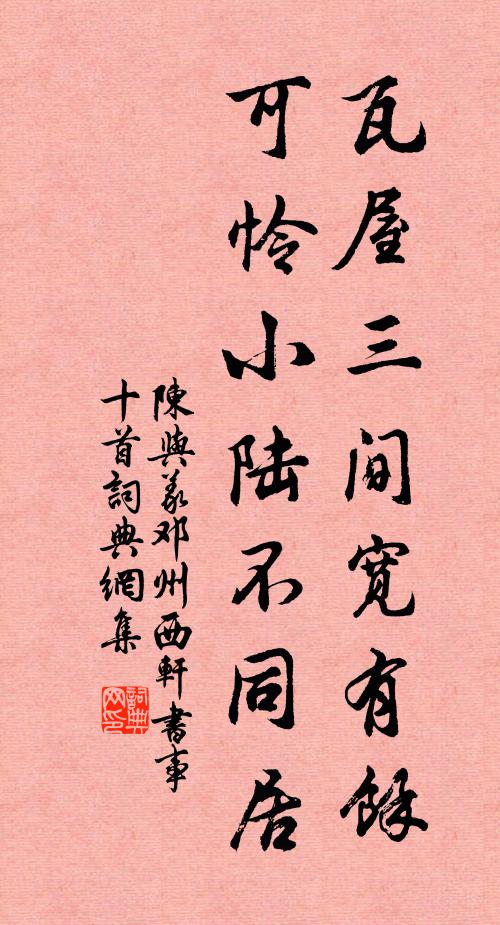 瓦屋三间宽有馀
可怜小陆不同居
陳與義邓州西軒書事
十首詞典網集
詞典网印